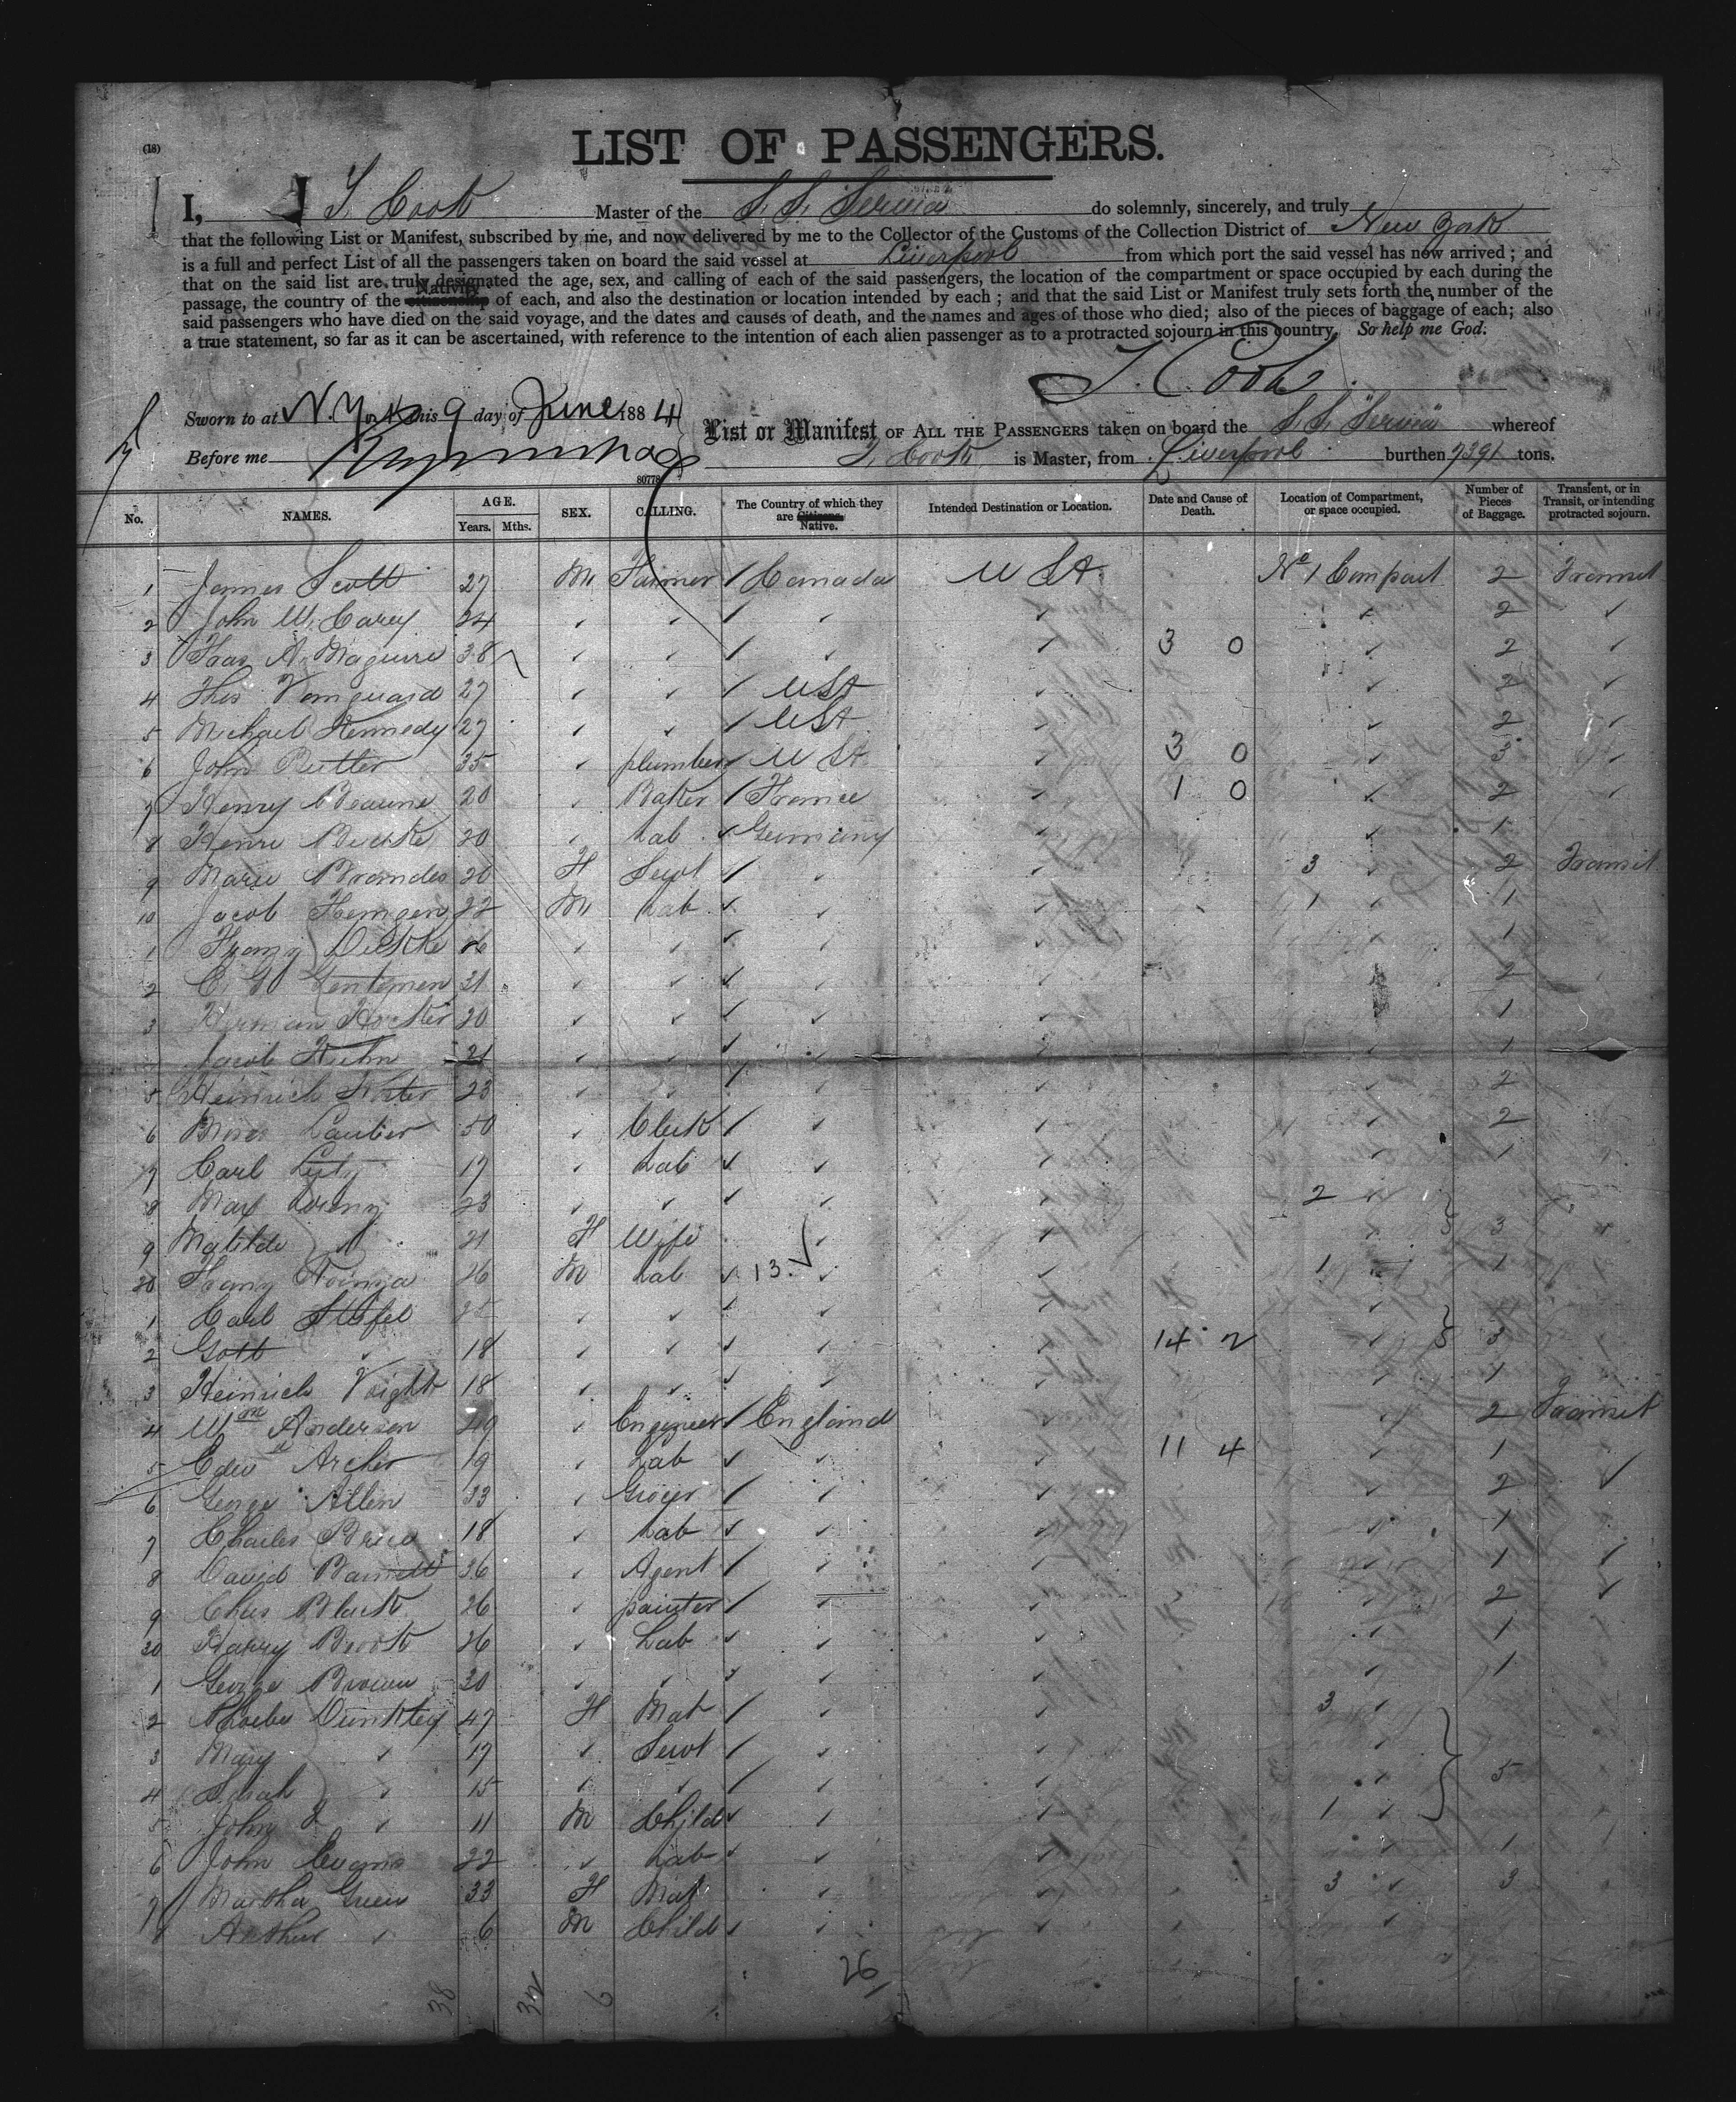 (18)
LIST OF PASSENGERS.
I, T. Cook Master of the S.S. Servia do solemnly, sincerely, and truly
that the following List or Manifest, subscribed by me, and now delivered by me to the Collector of the Customs of the Collection District of New York
is a full and perfect List of all the passengers taken on board the said vessel at Liverpool from which port the said vessel has now arrived; and
that on the said list are truly designated the age, sex, and calling of each of the said passengers, the location of the compartment or space occupied by each during the
passage, the country of the Nativity citizenship of each, and also the destination or location intended by each; and that the said List or Manifest truly sets forth the number of the
said passengers who have died on the said voyage, and the dates and causes of death, and the names and ages of those who died; also of the pieces of baggage of each; also
a true statement, so far as it can be ascertained, with reference to the intention of each alien passenger as to a protracted sojourn in this country. So help me God.
T. Cook
Sworn to at N. York this 9 day of June 1884
List or Manifest OF ALL THE PASSENGERS taken on board the S.S. "Servia" whereof
Before me
T. Cook is Master, from Liverpool burthen 7391 tons.
80778
No. NAMES. AGE. Years. Mths. SEX. CALLING. The Country of which they are Citizens. Native. Intended Destination or Location. Date and Cause of Death. Location of Compartment, or space occupied. Number of Pieces of Baggage. Transient, or in Transit, or intending protracted sojourn.
1 James Scott 27 M Farmer / Canada U St No 1 Compart 2 Transit
2 John W. Carey 24 ✓ ✓ / ✓ ✓ ✓ 2 ✓
3 A. Maguire 38 ✓ ✓ / ✓ ✓ 3 0 ✓ 2 ✓
4 Thos Vanguard 27 ✓ ✓ / U St ✓ ✓ 2 ✓
5 Michael Kennedy 27 ✓ ✓ / U St ✓ ✓ 2 ✓
6 John Rutter 35 ✓ plumber / U St ✓ 3 0 ✓ 3 ✓
7 Henry 20 ✓ Baker / France ✓ 1 0 ✓ 2 ✓
8 Henri 20 ✓ Lab ✓ Germany ✓ ✓ 1
9 Marie Brandes 20 F Servt / ✓ ✓ 3 ✓ 2 Transit
10 Jacob 22 M Lab ✓ ✓ ✓ 1 ✓ 1
1 Franz ✓ ✓ ✓ ✓ ✓ ✓ 1
2 C. G. Gentemen 21 ✓ ✓ ✓ ✓ ✓ 2
3 Herman 20 ✓ ✓ ✓ ✓ ✓ 1
Jacob Kuhn 21 ✓ ✓ ✓ ✓ ✓ 1
5 Heinrich 23 ✓ ✓ / ✓ ✓ ✓ 2
6 50 ✓ Clerk / ✓ ✓ ✓ 2
7 Carl 17 ✓ Lab ✓ ✓ ✓ ✓ 1
8 Max 23 ✓ ✓ ✓ ✓ ✓ 2 ✓
9 Matilde 21 F Wife ✓ ✓ ✓ 3
20 Franz 26 M Lab ✓ 13 ✓ ✓ 1 1
1 Carl ✓ ✓ ✓ ✓ ✓
2 Gott ✓ 18 ✓ ✓ ✓ ✓ ✓ 14 2 ✓ 3
3 Heinrich Voight 18 ✓ ✓ ✓ ✓ ✓ 1
4 Wm Anderson 49 ✓ Engineer / England ✓ ✓ 2 Transit
5 Edwd Archer 19 ✓ Lab ✓ ✓ ✓ 11 4 ✓ 1
6 George Allen 33 ✓ Grocer / ✓ ✓ ✓ 2 ✓
7 Charles Price 18 ✓ Lab ✓ ✓ ✓ ✓ 1
8 David Barnett 36 ✓ Agent / ✓ ✓ ✓ 1 ✓
9 Chas Black 26 ✓ painter / ✓ ✓ ✓ 2 ✓
30 Harry Brook 26 ✓ Lab ✓ ✓ ✓ ✓ 1
1 George Brown 30 ✓ ✓ ✓ ✓ ✓ ✓ 1
2 Phoebe Dunkley 47 F Mat / ✓ ✓ 3 ✓
3 Mary ✓ 17 ✓ Servt / ✓ ✓ ✓
4 Sarah ✓ 15 ✓ ✓ / ✓ ✓ ✓ 5
5 John ✓ 11 M Child ✓ ✓ ✓ 1 ✓
6 John Evans 22 ✓ Lab ✓ ✓ ✓ ✓ 1
7 Martha Green 33 F Mat ✓ ✓ 3 ✓ 3
8 Arthur ✓ 6 M Child ✓ ✓ ✓ ✓
38 32 6 26